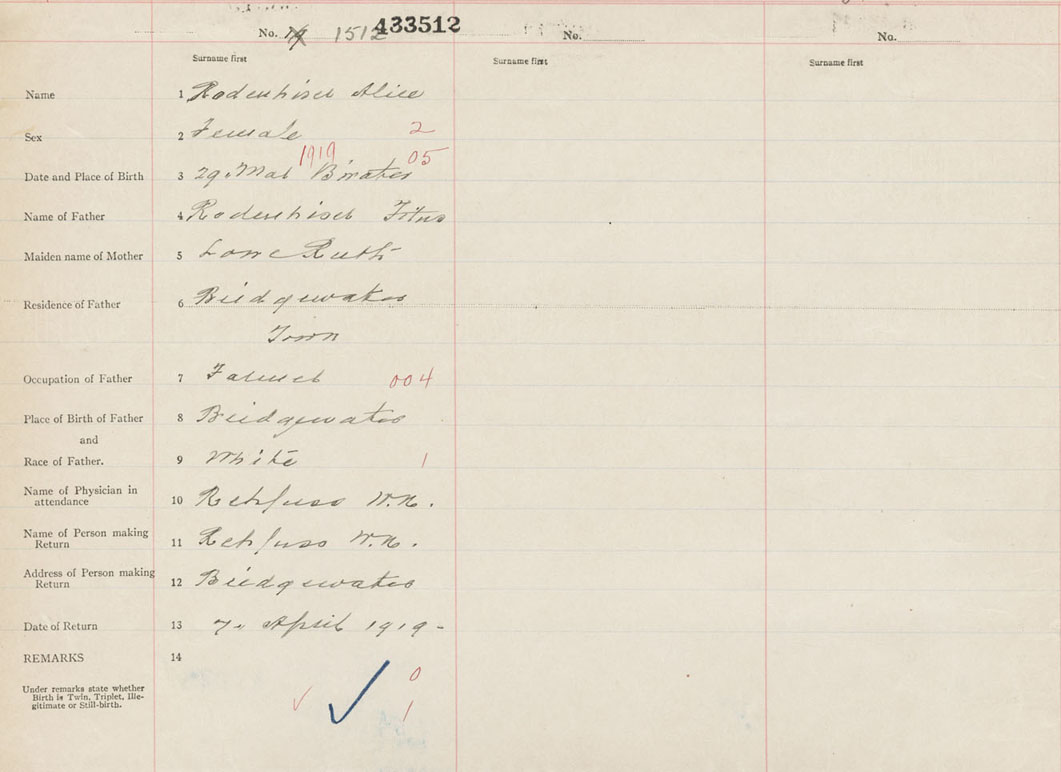 No. 1512 433512 No. No.
Surname first Surname first Surname first
Name 1 Rodenhiser Alice
Sex 2 Female 2
1919 05
Date and Place of Birth 3 29. Mar B'water
Name of Father 4 Rodenhiser Titus
Maiden name of Mother 5 Lowe Ruth
Residence of Father 6 Bridgewater
Town
Occupation of Father 7 Farmer 004
Place of Birth of Father 8 Bridgewater
and
Race of Father. 9 White 1
Name of Physician in
attendance 10 Rehfuss W.N.
Name of Person making
Return 11 Rehfuss W.N.
Address of Person making
Return 12 Bridgewater
Date of Return 13 7. April 1919-
REMARKS 14
0
Under remarks state whether
Birth is Twin, Triplet, Ille-
gitimate or Still-birth. 1